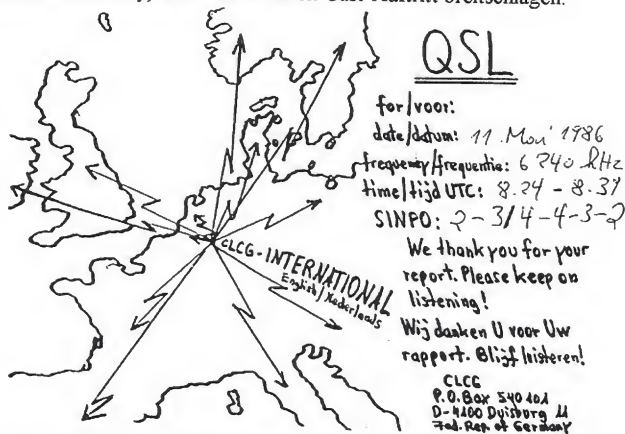 breitschlagen.
QSL
for/voor:
date/datum: 11. Mai 1986
frequency/frequentie: 6240 kHz
time/tijd UTC: 8.24 - 8.31
SINPO: 2-3/4-4-3-2
We thank you for your
report. Please keep on
listening!
Wij danken U voor Uw
rapport. Blijf luisteren!
CLCG
P.O. Box 540 101
D-4100 Duisburg 11
Fed. Rep. of Germany
CLCG-INTERNATIONAL
English/Nederlands